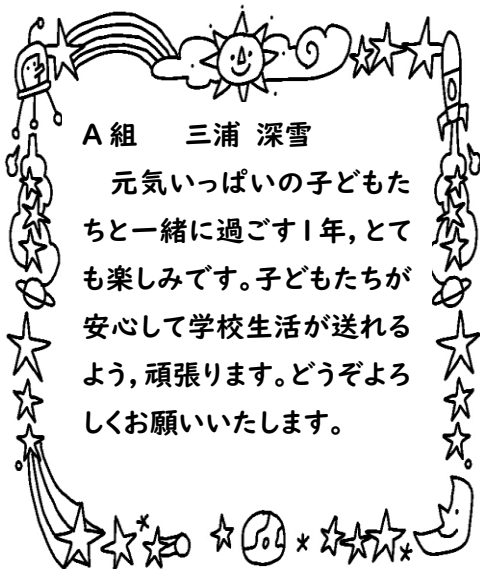 A組　　三浦 深雪
　元気いっぱいの子どもた
ちと一緒に過ごす1年,とて
も楽しみです。子どもたちが
安心して学校生活が送れる
よう,頑張ります。どうぞよろ
しくお願いいたします。